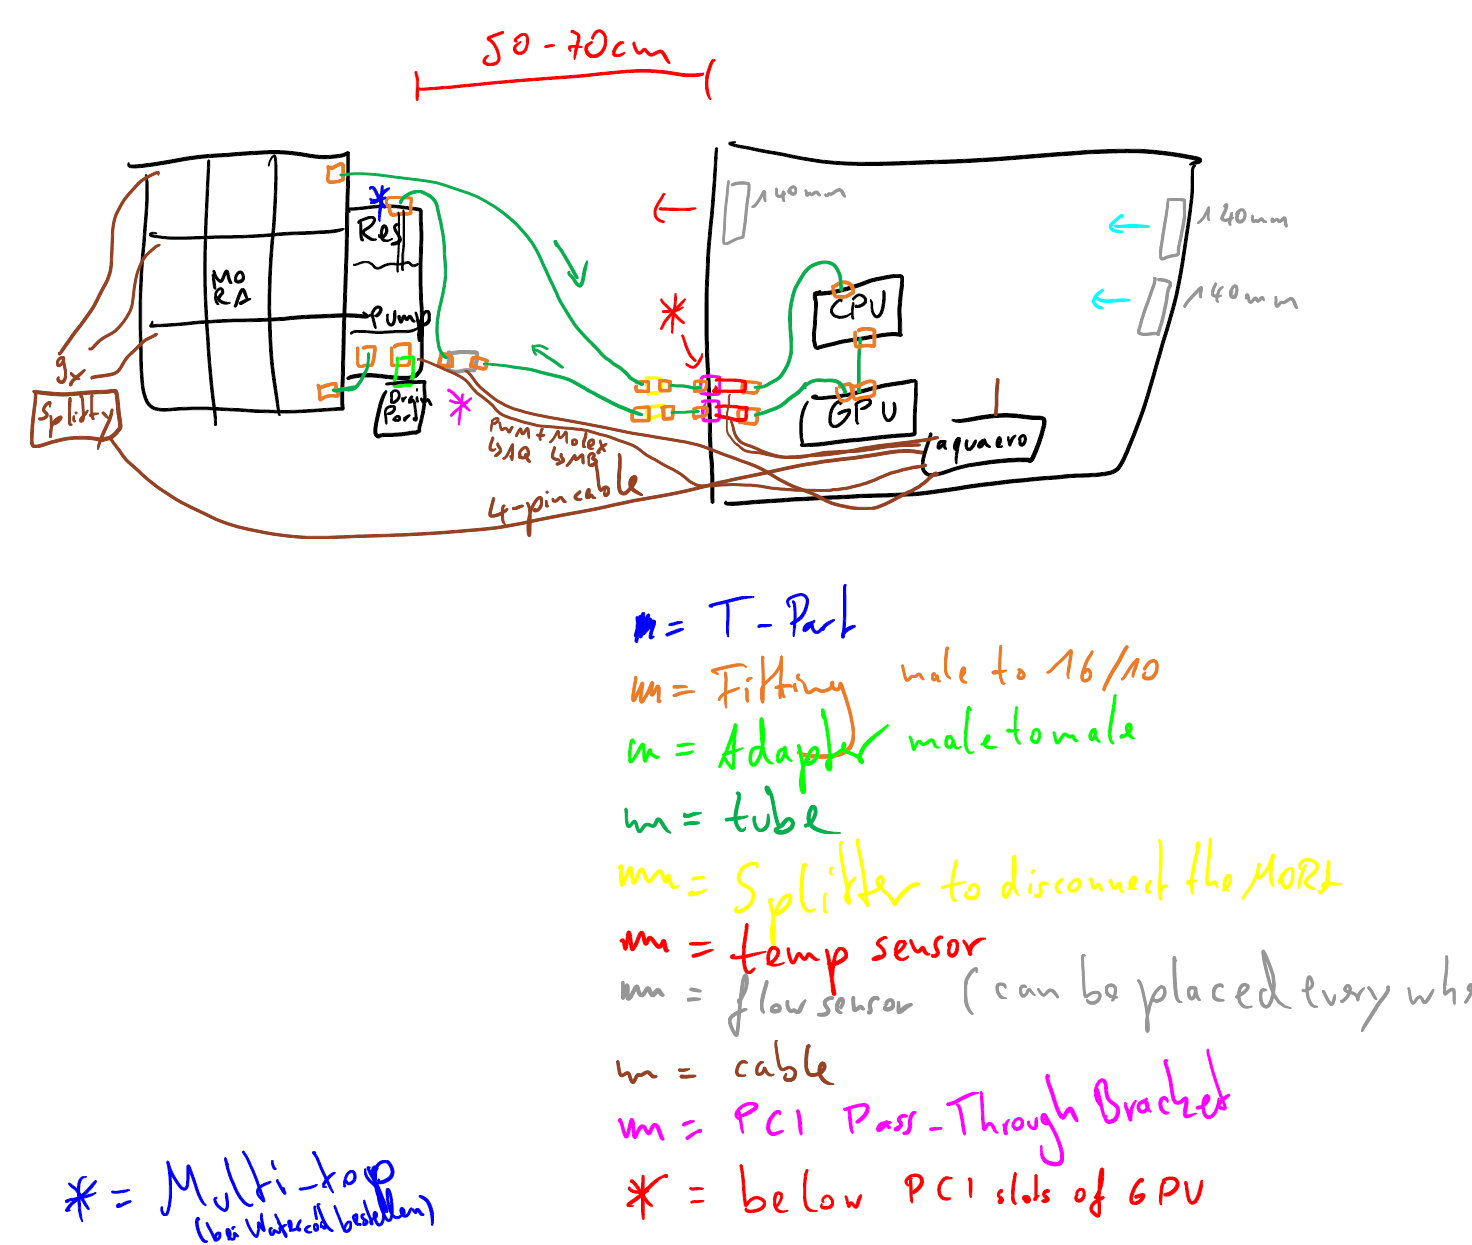 50-70cm
140mm
140mm
140mm
Res
MO
RA
CPU
Pump
9x
GPU
Drain
Port
Splitty
aquaero
PWM + Molex
↳AQ ↳MB
4-pin cable
= T-Part
= Fitting male to 16/10
= Adapter male to male
= tube
= Splitter to disconnect the MORA
= temp sensor
= flow sensor (can be placed every whe
= cable
= PCI Pass-Through Bracket
* = below PCI slots of GPU
* = Multi-top
(bei Watercool bestellen)